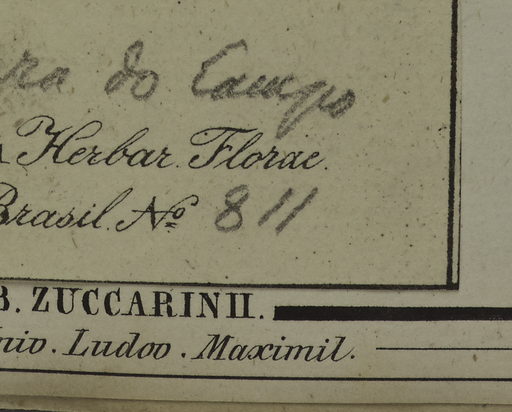 do Campo
Herbar. Florae.
Brasil. No 811
B. ZUCCARINII.
Ludov. Maximil.